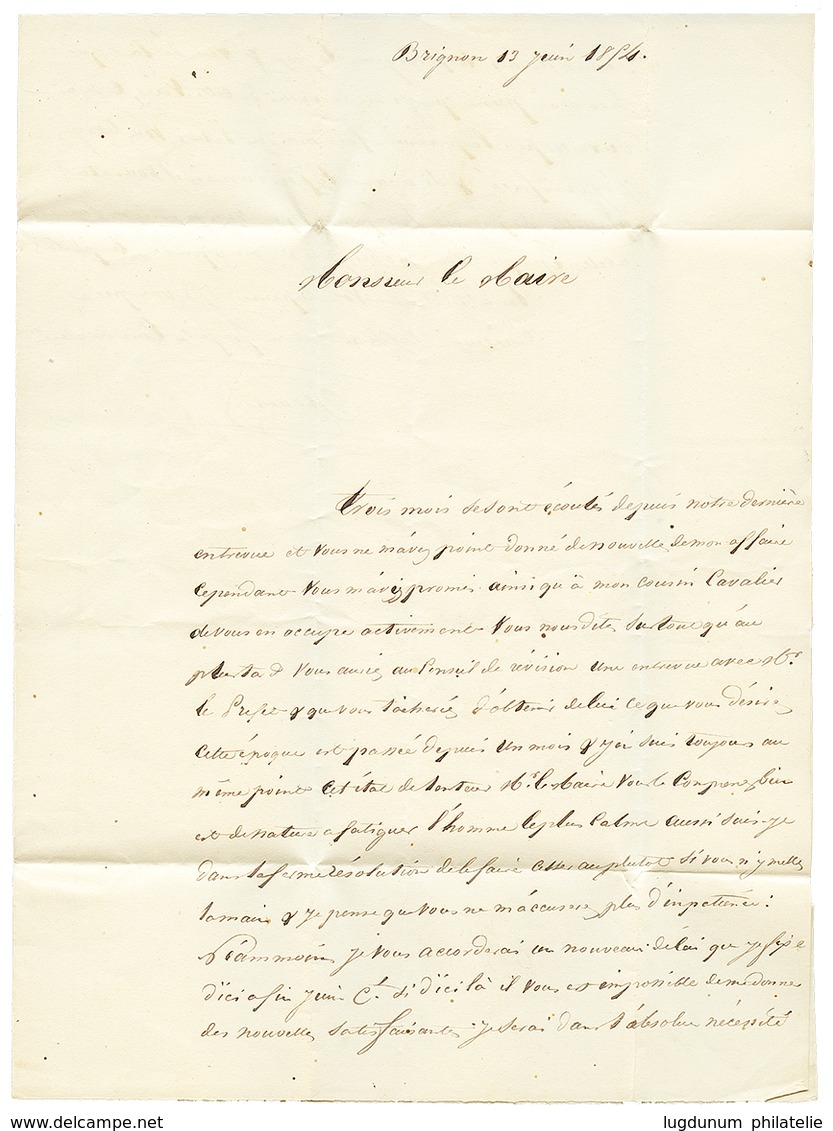 Brignon 13 Juin 1854.
Monsieur le Maire
Trois mois se sont écoulés depuis notre dernière
entrevue et vous ne m'avez point donné de nouvelle de mon affaire
Cependant vous m'aviez promis ainsi qu'à mon cousin Cavalier
de vous en occupé activement vous nous dites surtout qu'au
plus tard vous auriez au Conseil de révision une entrevue avec Mr.
le Préfet & que vous tacheriez d'obtenir de lui ce que vous désirez
cette époque est passée depuis un mois & j'en suis toujours au
même point cet état de lenteur Mr. le Maire vous le comprenez bien
est de nature a fatiguer l'homme le plus calme aussi suis-je
dans la ferme résolution de le faire cesser au plutot si vous n'y mettez
la main & je pense que vous ne m'accuserez plus d'inpatience:
Néammoins je vous accorderai un nouveau délai que je fixe
d'ici a fin juin Ct. si d'ici là il vous est impossible de me donner
des nouvelles satisfaisantes je serai dans l'absolue nécéssité
lugdunum philatelie